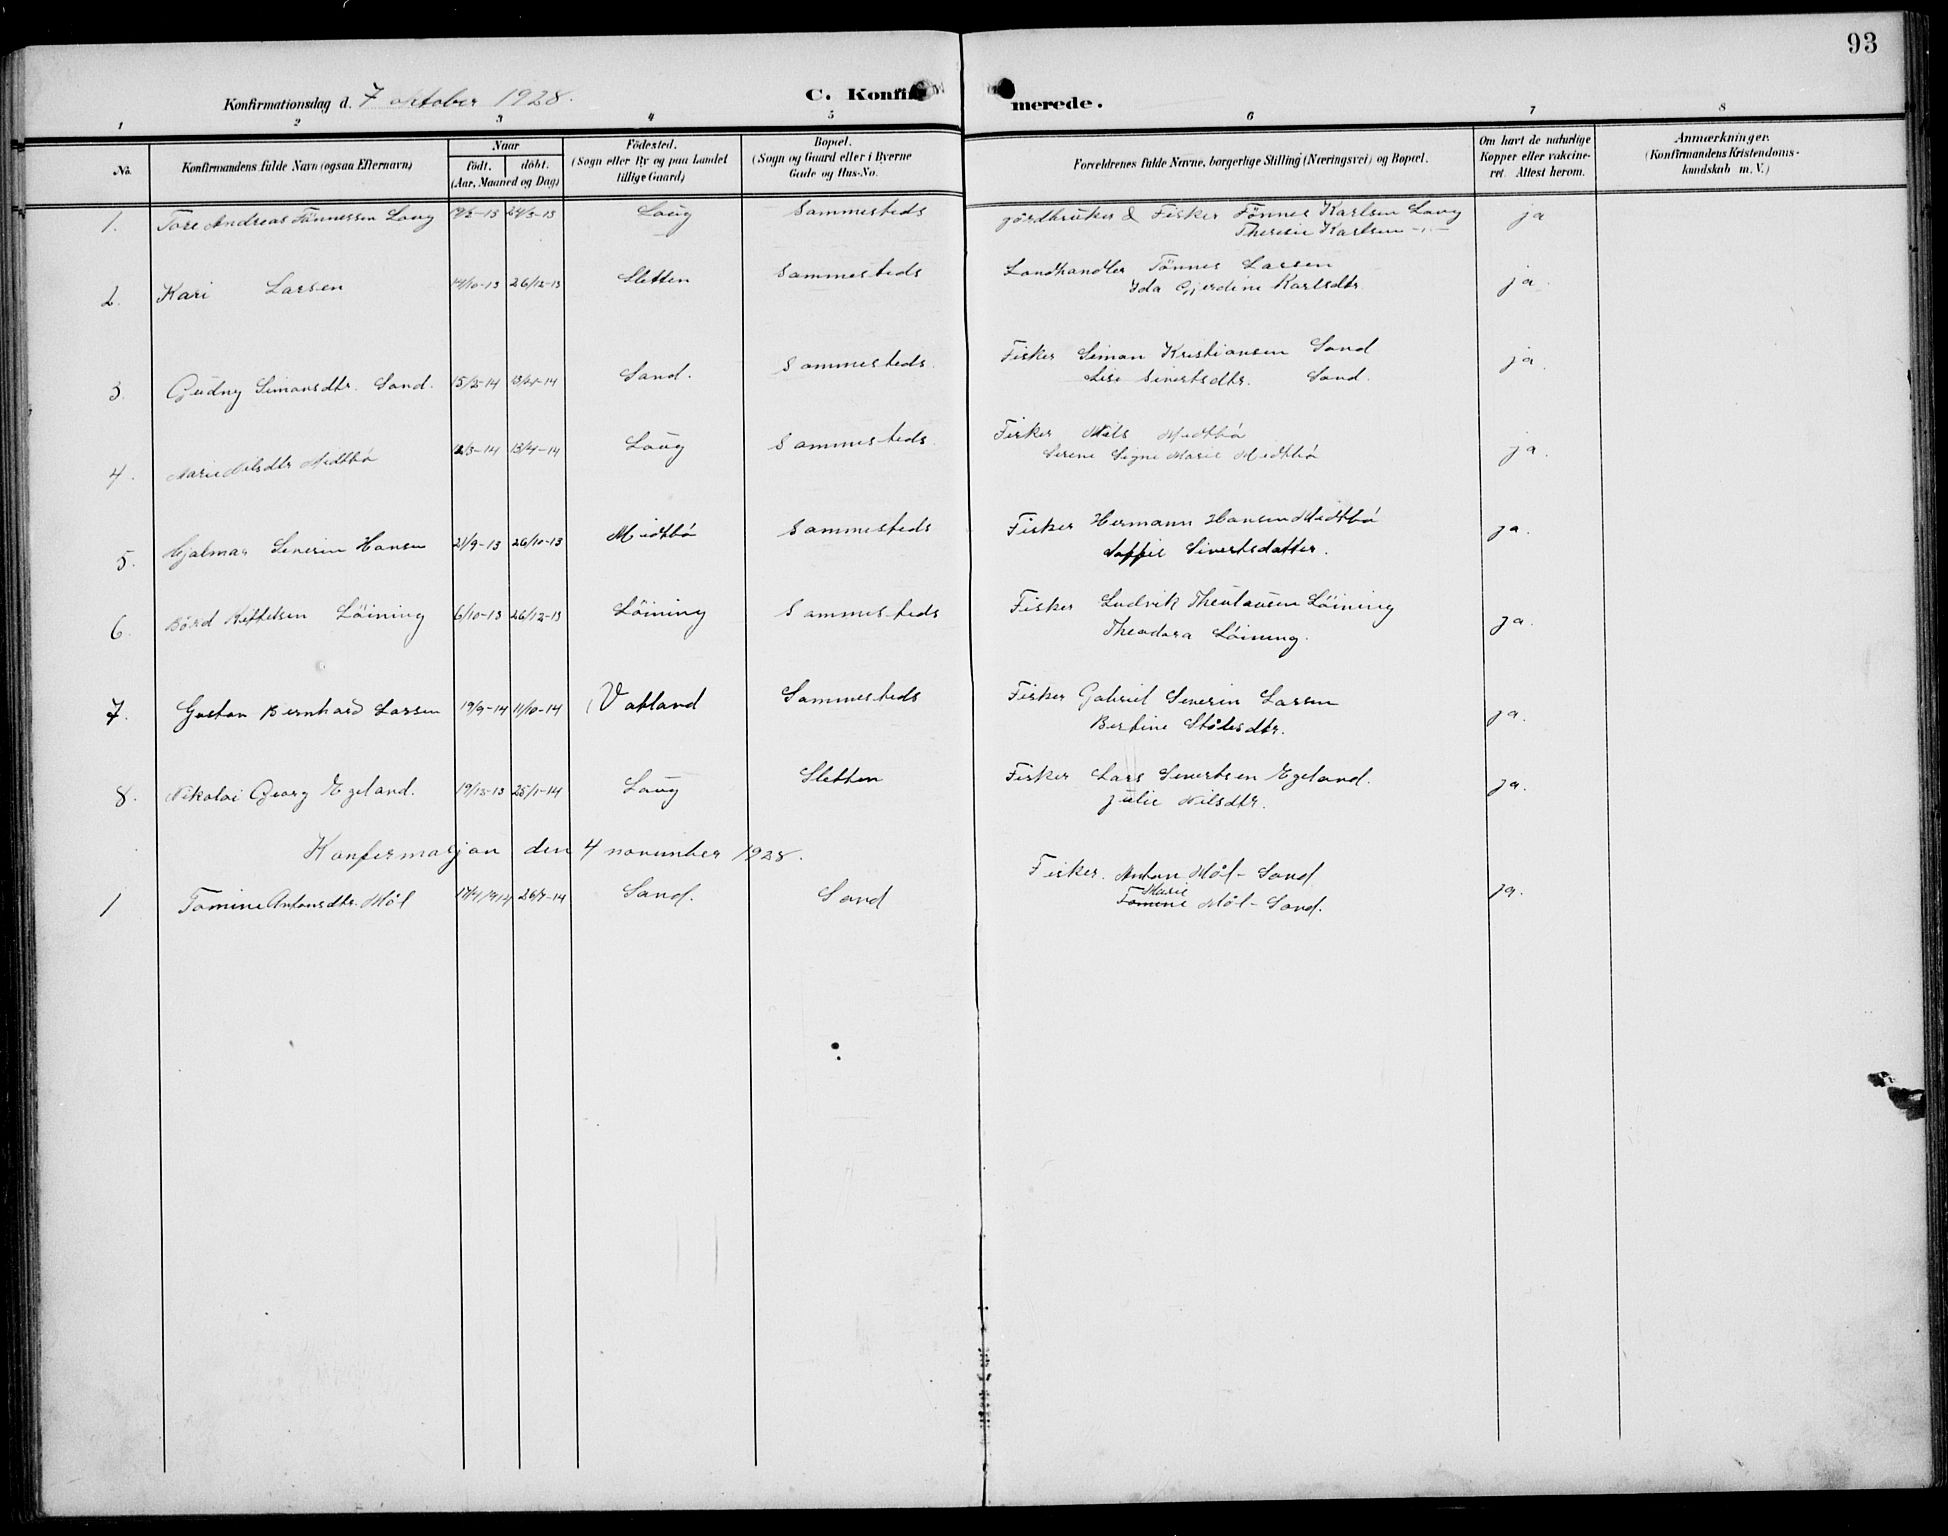 93
Konfirmationsdag d. 7 oktober 1928.
C. Konfir merede.
1 2 3 4 5 6 7 8
No. Konfirmandens fulde Navn (ogsaa Efternavn) Naar födt. döbt. (Aar, Maaned og Dag) Födested. (Sogn eller By og paa Landet tillige Gaard) Bopæl. (Sogn og Gaard eller i Byerne Gade og Hus-No. Forældrenes fulde Navne, borgerlige Stilling (Næringsvei) og Bopæl. Om havt de naturlige Kopper eller vakcineret. Attest herom. Anmærkninger. (Konfirmandens Kristendomskundskab m. V.)
1. Tore Andreas Tönnessen Laug 24/3-13 Laug Sammesteds gårdbruker & Fisker Tönnes Karlsen Laug ja
Theresie Karlsen -"-
2. Kari Larsen 14/10-13 26/12-13 Sletten Sammesteds Landhandler Tönnes Larsen ja.
Ida Gjerdine Karlsdtr.
3. Gudny Simonsdtr. Sand. 15/3-14 13/4-14 Sand. Sammesteds. Fisker Simon Kristiansen Sand ja.
Lise Sivertsdtr. Sand.
4. Marie Nilsdtr Midtbö 2/3-14 13/4-14 Laug Sammesteds. Fisker Nils Midtbö ja.
Serene Signe Marie Midtbö
5. Hjalmar Severin Hansen 21/9-13 26/10-13 Midtbö Sammesteds Fisker Hermann Hansen Midtbö ja.
Soffie Sivertsdatter.
6. Bård Kittelsen Löining 6/10-13 26/12-13 Löining Sammesteds Fisker Ludvik Löining ja.
Theodora Löining.
7. Gustav Bernhard Larsen 19/9-14 11/10-14 Vatland Sammesteds Fisker Gabriel Severin Larsen ja.
Bertine Ståledtr.
8. Nikolai Georg Egeland. 19/12-13 25/1-14 Laug Sletten Fisker Lars Sivertsen Egeland. ja.
Julie Nilsdtr.
Konfermasjon den 4 november 1928.
1 Tomine Antonsdtr. Möl 26/7-14 Sand. Sand Fisker. Anton Möl - Sand ja.
Marie
Tomine Möl - Sand.